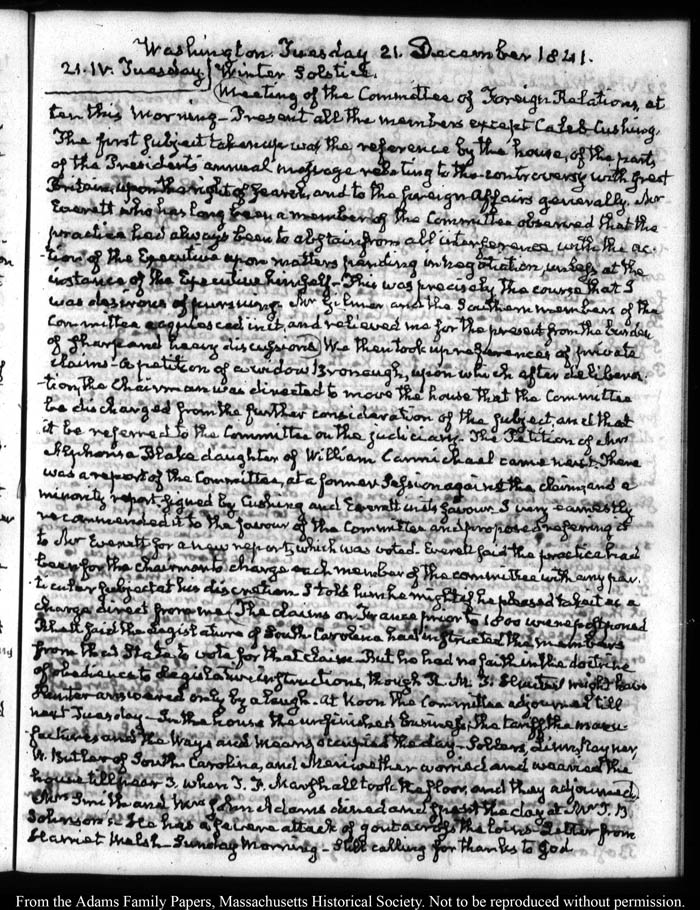 Washington Tuesday 21. December 1841.
21. IV. Tuesday. Winter Solstice.
Meeting of the Committee of Foreign Relations, at
ten this Morning — Present all the members except Caleb Cushing.
The first subject taken up was the reference by the house, of the part,
of the President's annual message relating to the controversy with Great
Britain, upon the right of search, and to the foreign Affairs generally. Mr
Everett who has long been a member of the Committee observed that the
practice had always been to abstain from all interference with the ac-
-tion of the Executive upon matters pending in negotiation, unless at the
instance of the Executive himself — This was precisely the course that I
was desirous of pursuing. Mr Gilmer and the Southern members of the
Committee acquiesced in it, and relieved me for the present from the burden
of sharp and heavy discussions. We then took up references of private
claims — A petition of a widow Bronaugh, upon which after delibera-
-tion, the Chairman was directed to move the house that the Committee
be discharged from the further consideration of the subject, and that
it be referred to the Committee on the judiciary. The Petition of Mrs
Alphonsa Blake daughter of William Carmichael came next. There
was a report of the Committee, at a former Session against the claim, and a
minority report signed by Cushing and Everett in its favour. I very earnestly
recommended it to the favour of the Committee and proposed referring it
to Mr Everett for a new report, which was voted. Everett said the practice had
been for the chairman to charge each member of the committee with any par-
ticular subject at his discretion. I told him he might if he pleased take it as a
charge direct from me. The claims on France prior to 1800 were postponed
Rhett said the Legislature of South-Carolina had instructed the members
from that State to vote for that claim — But he had no faith in the doctrine
of obedience to Legislative instructions, though R. M. T. Hunter might have
Hunter answered only by a laugh. At Noon the Committee adjourned till
next Tuesday — In the house the unfinished business, The tariff the manu-
factures and the Ways and Means occupied the day — Sollers, Linn, Rayner,
W. Butler of South Carolina, and Meriwether worried and wearied the
house till near 3. when T. F. Marshall took the floor, and they adjourned.
Mrs Smith and Mrs John Adams dined and spent the day at Mr T. B.
Johnson's — He has a severe attack of gout across the loins. Letter from
Harriet Welsh — Sunday Morning — Still calling for thanks to God
From the Adams Family Papers, Massachusetts Historical Society. Not to be reproduced without permission.